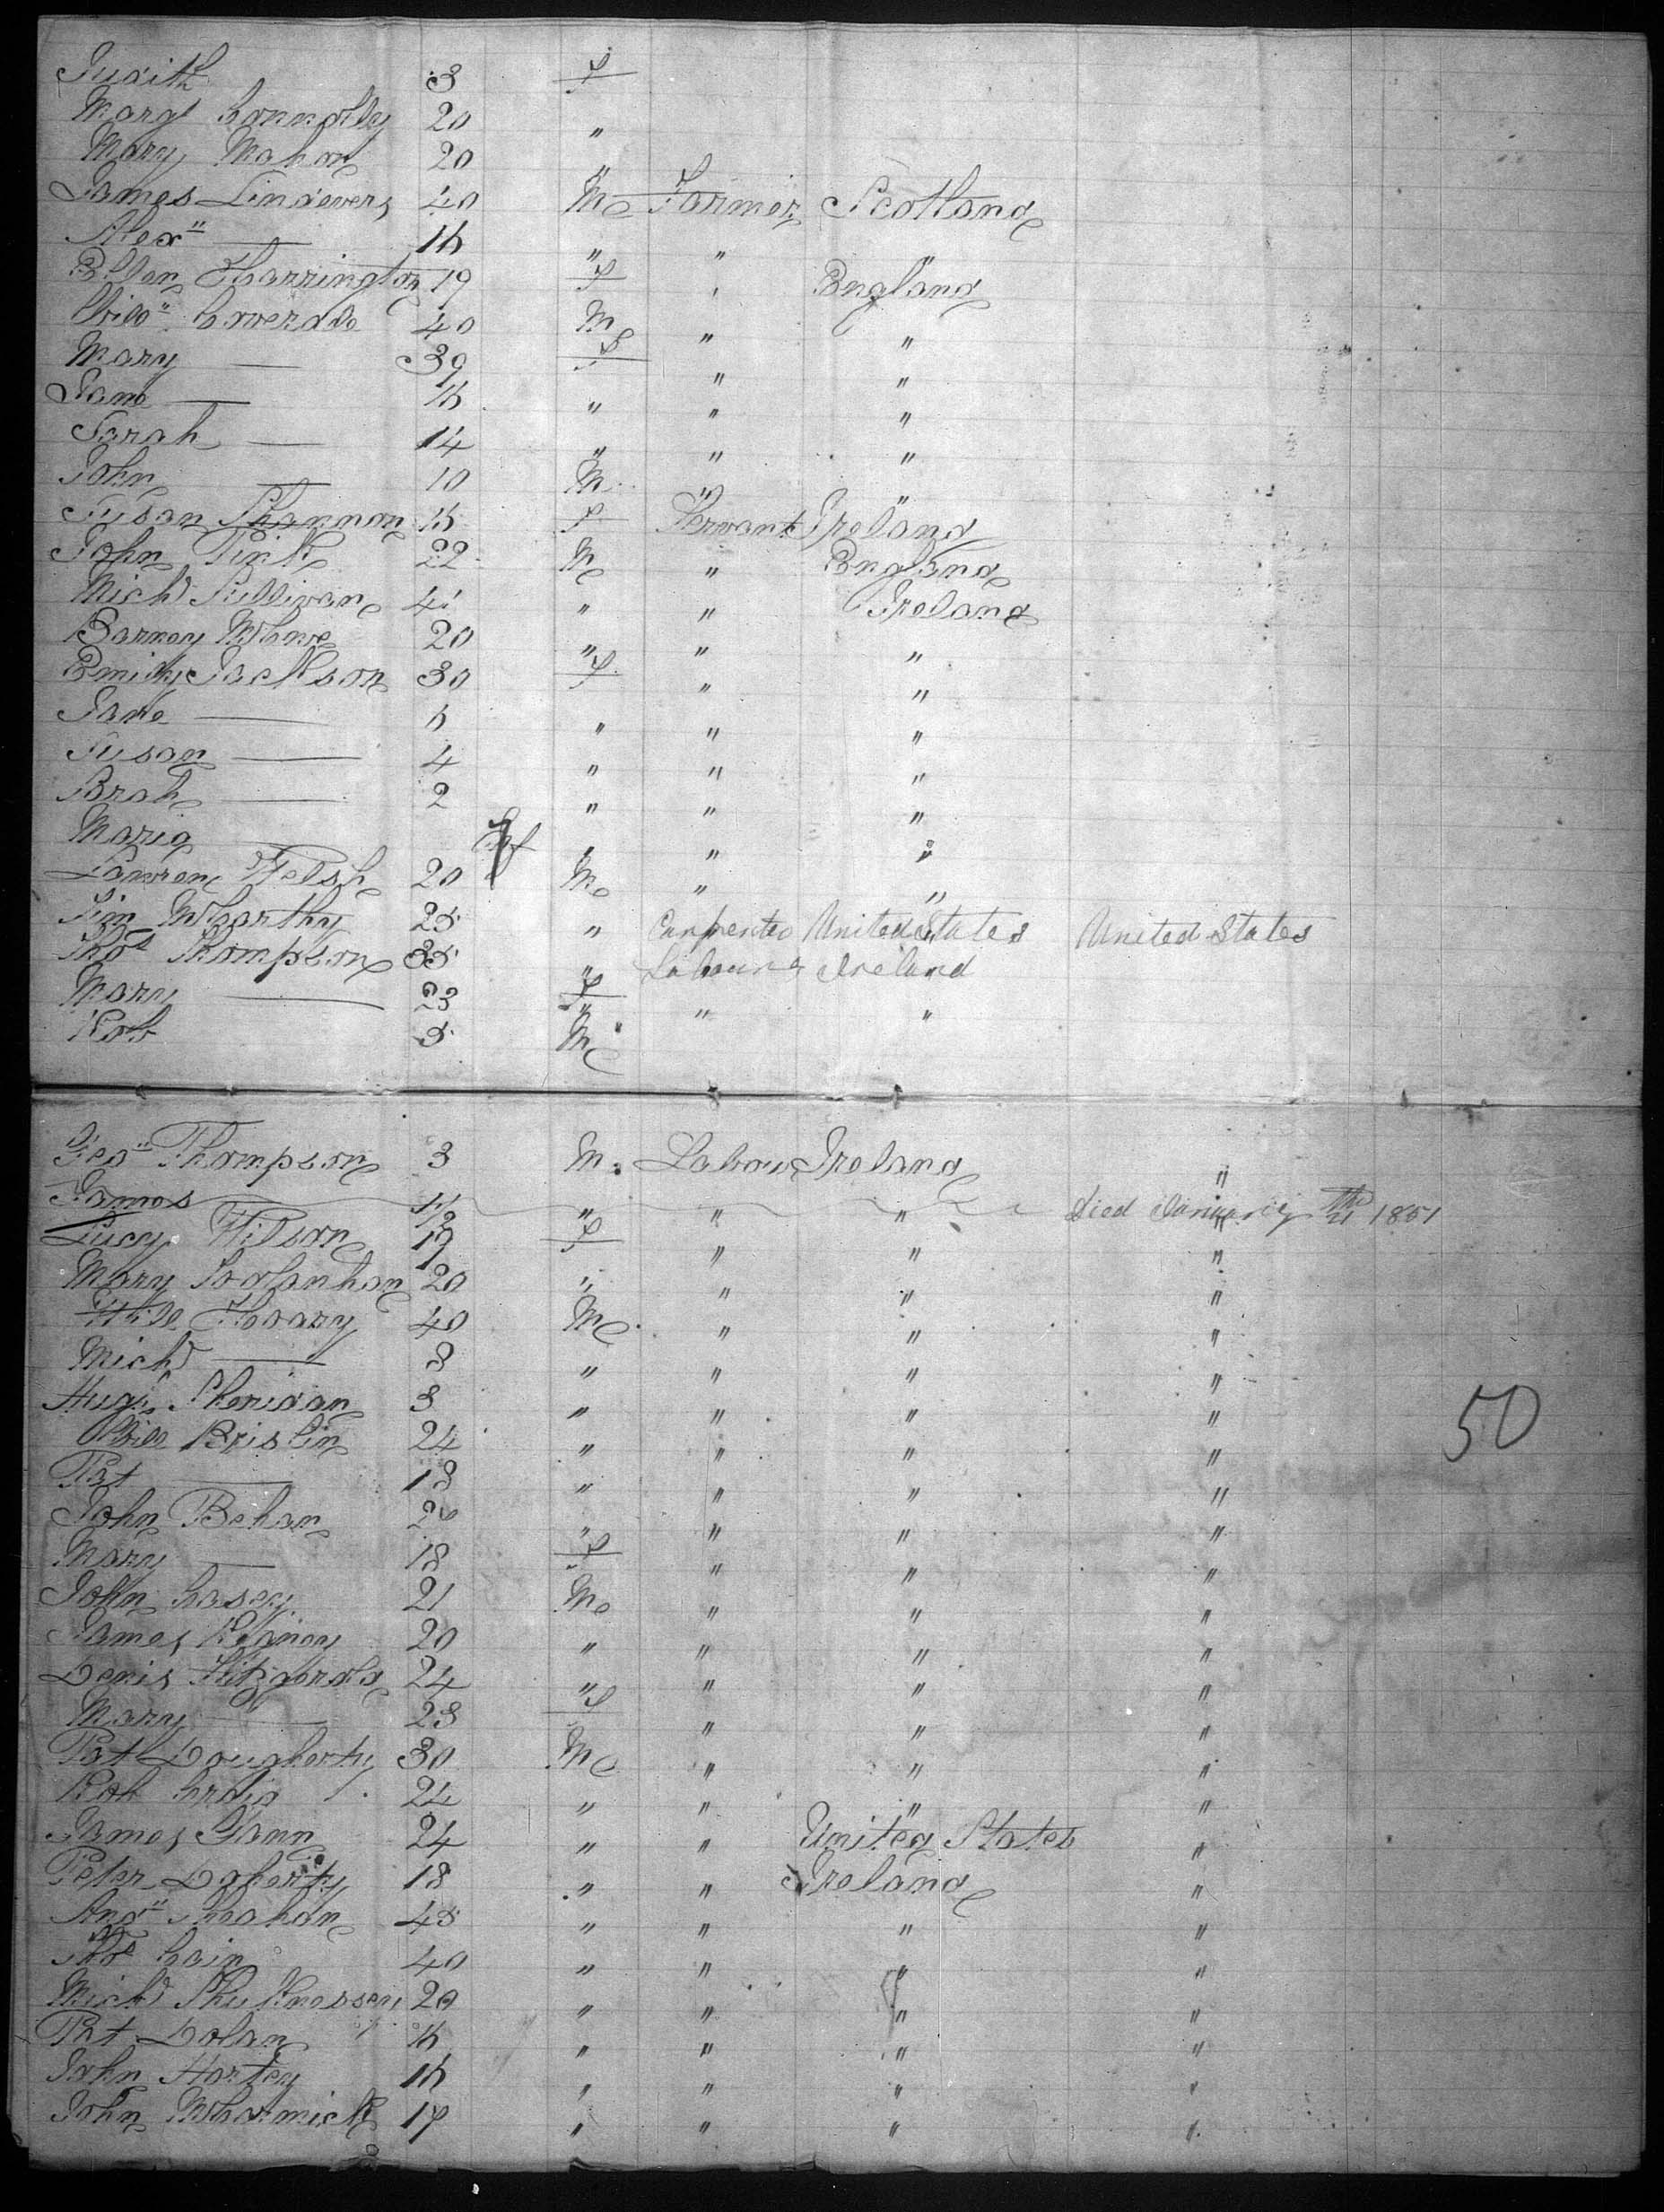 Judith 3 F
Margt Connolly 20 "
Mary Mahon 20 "
James Lindevers 40 M Farmer Scotland
Alexr — 16 " " "
Ellen Harrington 19 F " England
Will Coverdale 40 M " "
Mary — 39 F " "
Jane — 16 " " "
Sarah — 14 " " "
John — 10 M " "
Susan Shannon 16 F Servant Ireland
John Pink 22 M " England
Michl Sullivan " " Ireland
Barney 20 " " "
Emily Jackson 30 F " "
Jane — 6 " " "
Susan — 4 " " "
— 2 " " "
Maria Inf " " "
Lawrenc Welsh 20 M " "
Tim McCarthy 25 " Carpenter United States United States
Thos Thompson 35 " Labourer Ireland
Mary — 23 F " "
Rob 5 M
Geo Thompson 3 M. Labour Ireland "
James 1 1/2 " " " Died January 1851
Lucy Wilson 19 F " " "
Mary 20 " " " "
Will Hoary 40 M " " "
Michl — 8 " " " "
Hugh Sheridan 3 " " " "
Will Brislin 24 " " " "
Pat — 18 " " " "
John Behan " " " "
Mary — 18 F " " "
John Casey 21 M " " "
James 20 " " " "
Denis Fitzgerald 24 " " " "
Mary — 23 F " " "
Pat Dougherty 30 M " " "
Rob Craig 24 " " " "
James Gann 24 " " United States "
Peter Doherty 18 " " Ireland "
Andw Sheahan 45 " " " "
Thos Cain 40 " " " "
Michl 20 " " " "
Pat Dolan 16 " " " "
John Hartey 16 " " " "
John McCormick 17 " " " "
50